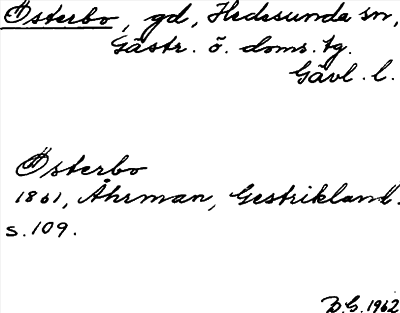 Österbo, gd, Hedesunda sn,
Gästr. ö. doms. tg.
Gävl. l.
Österbo
1861, Åhrman, Gestrikland.
s. 109.
D.G. 1962